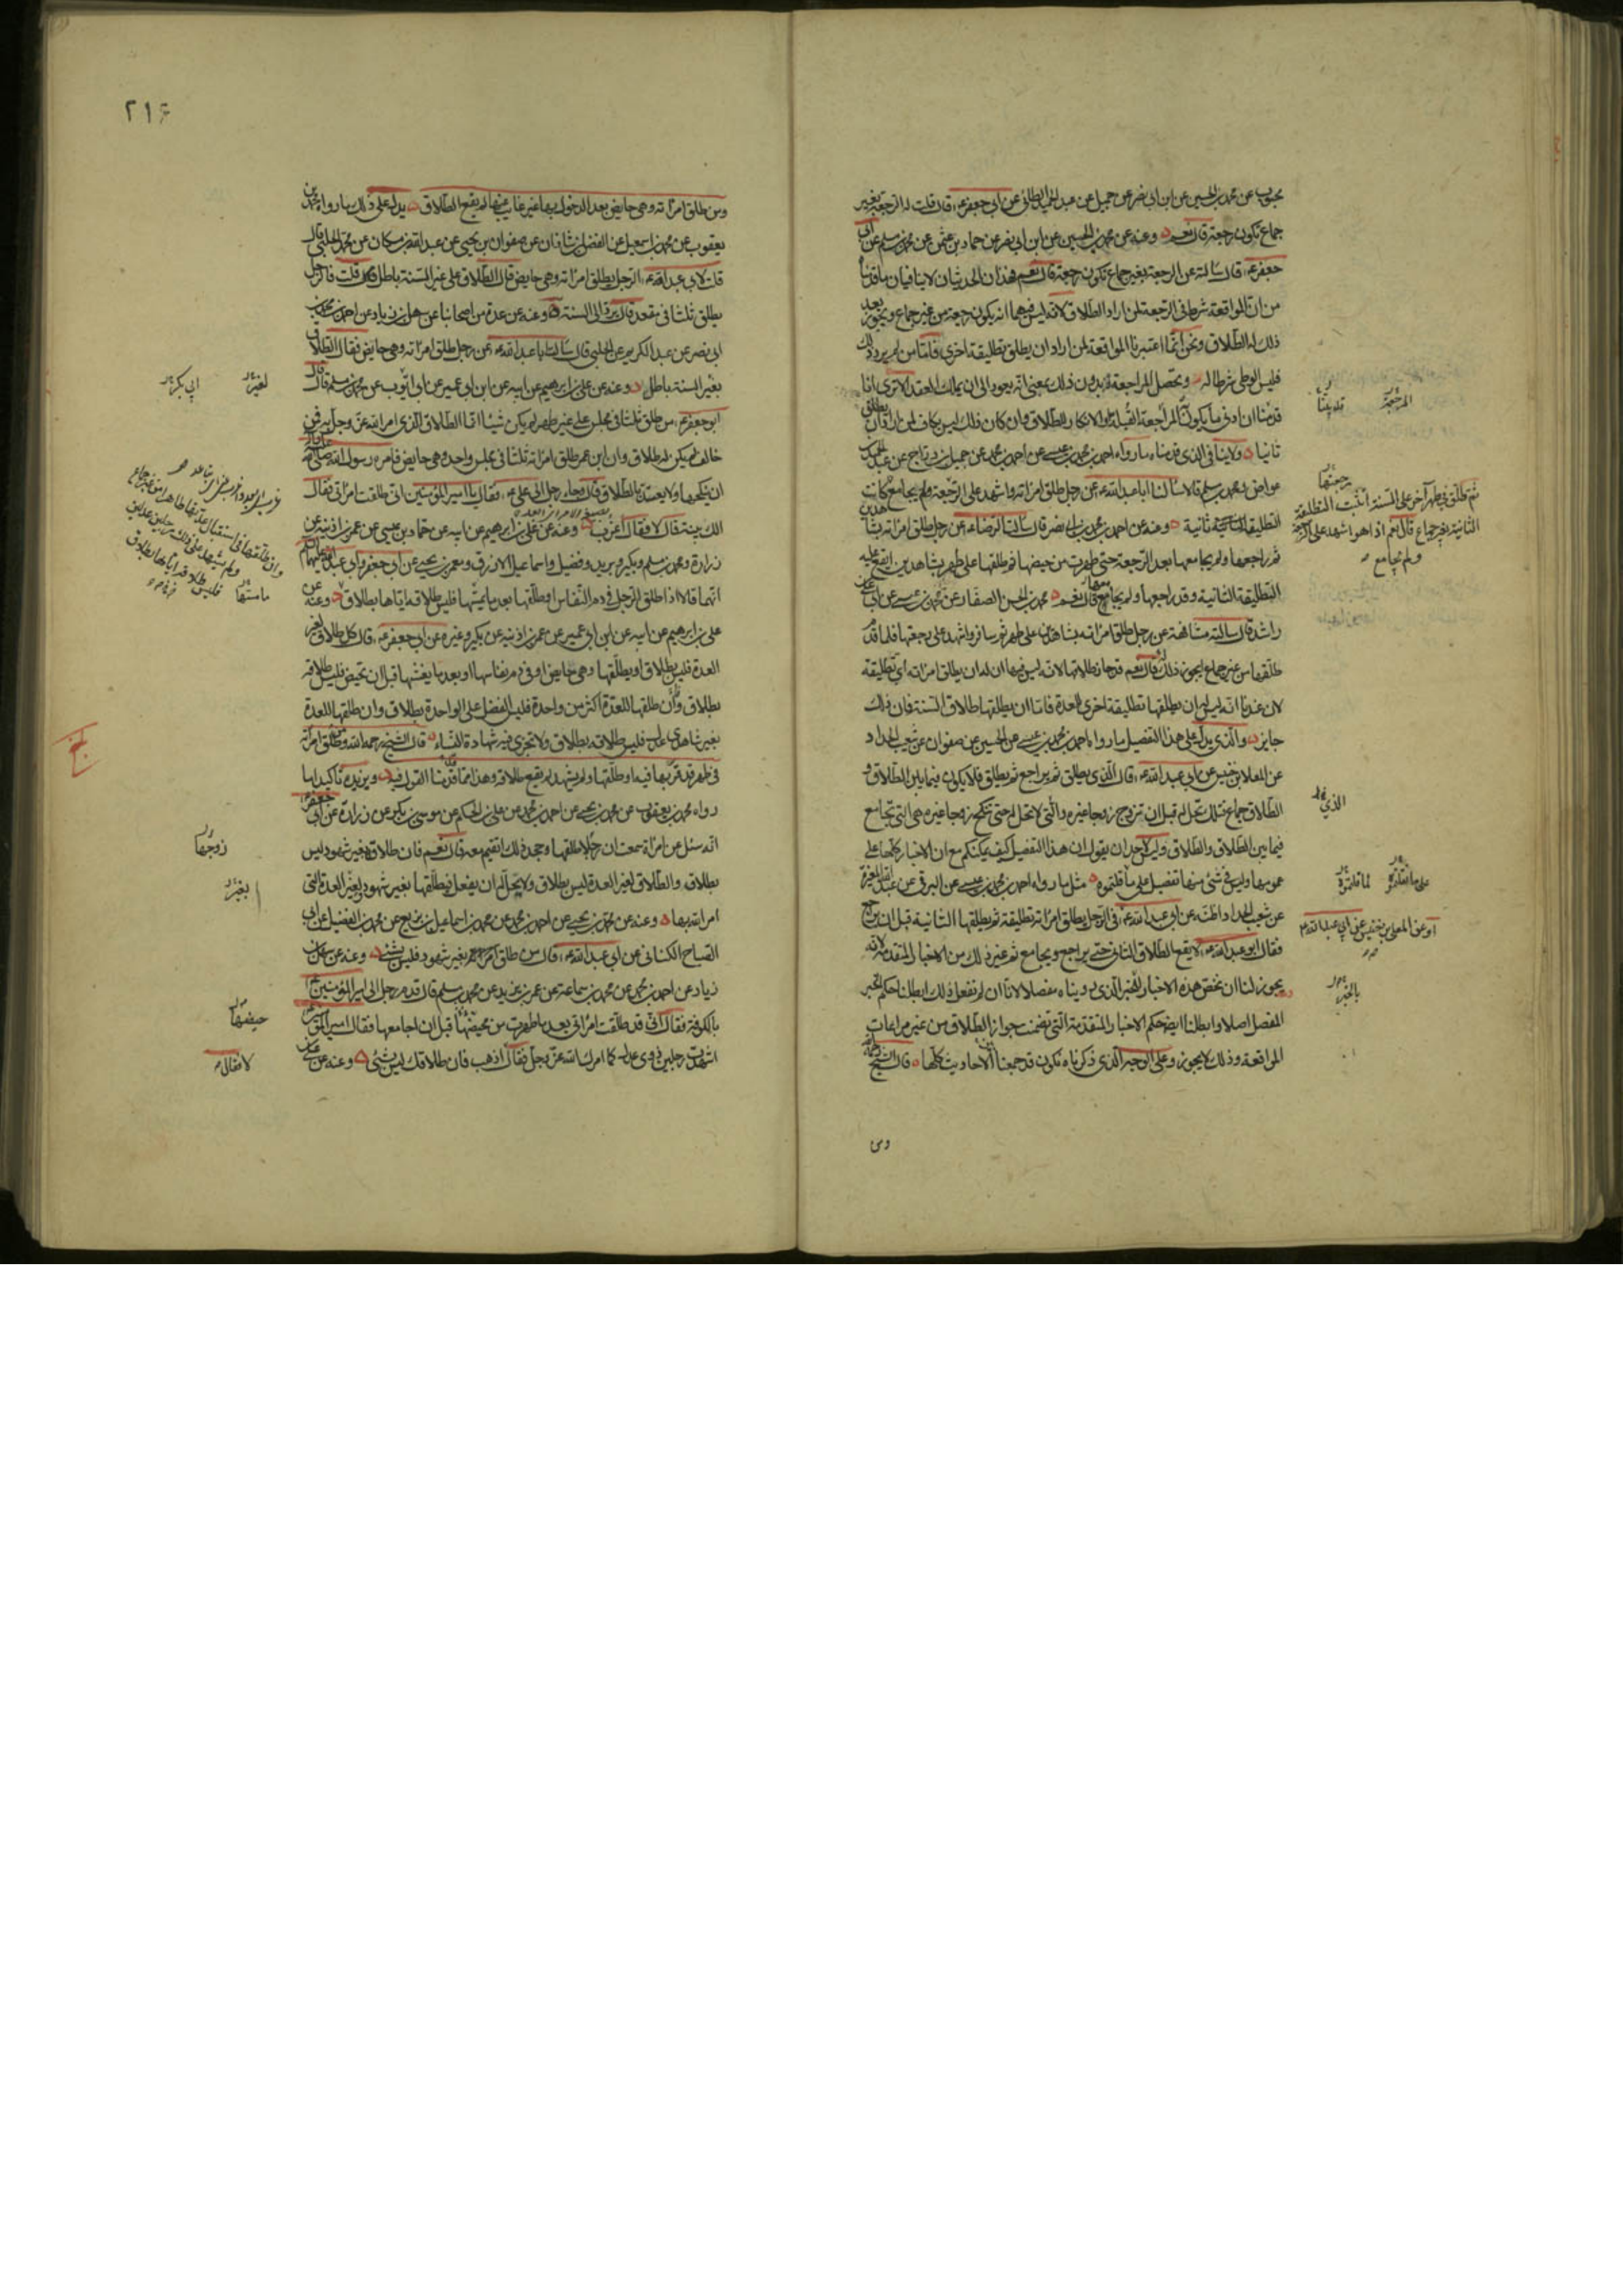 محبوب عن محمد بن الحسين عن ابن ابي نصر عن جميل عن عبد الحميد الطائي عن ابي جعفر ع قال قلت له الرجعة بغير
جماع تكون رجعة قال نعم وعنه عن محمد بن الحسين عن ابن ابي نصر عن حماد بن عثمن عن محمد بن مسلم عن ابي
جعفر ع قال سالته عن الرجعة بغير جماع تكون رجعة قال نعم فهذان الحديثان لا ينافيان ما قدمنا
من ان المواقعة شرط في الرجعة لمن اراد الطلاق لانه ليس فيهما انه يكون رجعة من غير جماع ويجوز بعد
ذلك له الطلاق ونحن انما اعتبرنا المواقعة لمن اراد ان يطلق تطليقة اخرى فاما من لم يرد ذلك
فليس الوطي شرطا له وتحصل المراجعة بدون ذلك بمعنى انه يعود الى ان يملك العقد الا ترى انا
قدمنا ان ادنى ما يكون المراجعة القبلة او الانكار للطلاق وان كان ذلك ليس بكاف لمن اراد ان يطلق
ثانيا ولا ينافي الذي قدمناه ما رواه احمد بن محمد بن عيسى عن احمد بن محمد عن جميل بن دراج عن عبد الحميد
عواض ومحمد بن مسلم قالا سالنا ابا عبد الله ع عن رجل طلق امراته واشهد على الرجعة ولم يجامع كانت
التطليقة ثانية وعنه عن احمد بن محمد بن ابي نصر قال سالت الرضا ع عن رجل طلق امراته بشاهدين
ثم راجعها ولم يجامعها بعد الرجعة حتى طهرت من حيضها ثم طلقها على طهر بشاهدين ايقع عليه
التطليقة الثانية وقد راجعها ولم يجامعها قال نعم محمد بن الحسن الصفار عن محمد بن عيسى عن ابي علي بن
راشد قال سالته مشافهة عن رجل طلق امراته بشاهدين على طهر ثم سافر واشهد على رجعتها فلما قدم
طلقها من غير جماع ايجوز ذلك له قال نعم قد جاز طلاقها لانه ليس فيها ان له ان يطلق امراته اي تطليقة
لان عندنا انه ليس له ان يطلقها تطليقة اخرى للعدة فاما ان يطلقها طلاق السنة فان ذلك
جايز والذي يدل على هذا التفصيل ما رواه احمد بن محمد بن عيسى عن الحسين عن صفوان عن شعيب الحداد
عن المعلا بن خنيس عن ابي عبد الله ع قال الذي يطلق ثم يراجع ثم يطلق فلا يكون فيما بين الطلاق و
الطلاق جماع فتلك تحل له قبل ان تزوج زوجا غيره والتي لا تحل له حتى تنكح زوجا غيره هي التي تجامع
فيما بين الطلاق والطلاق وليس لاحد ان يقول ان هذا التفصيل كيف يمكنكم مع ان الاخبار كلها على
عمومها وليس في شئ منها تفصيل على ما قلتموه مثل ما رواه احمد بن محمد بن عيسى عن البرقي عن عبد الله بن المغيرة
عن شعيب الحداد اظنه عن ابي عبد الله ع في الرجل يطلق امراته تطليقة ثم يطلقها الثانية قبل ان يراجع
فقال ابو عبد الله ع لا يقع الطلاق الثاني حتى يراجع ويجامع ثم غير ذلك من الاخبار المتقدمة لانه
يجوز لنا ان نخص هذه الاخبار للخبر الذي رويناه مفصلا لانا ان لم نفعل ذلك ابطلنا حكم الخبر
المفصل اصلا وابطلنا ايضا حكم الاخبار المتقدمة التي تضمنت جواز الطلاق من غير مراعات
المواقعة وذلك لا يجوز وعلى الوجه الذي ذكرناه نكون قد جمعنا بين الاحاديث كلها قال الشيخ رحمه الله
المرجعة
قد بينا
رجعتها
ثم طلق في طهر آخر على السنة اتثبت التطليقة
الثانية بغير جماع قال نعم اذا هو اشهد على الرجعة
ولم يجامع
الذي
على ما نقلتموه
لما قلتموه
او عن المعلى بن خنيس عن ابي عبد الله ع
بالخبر
ومن
٢١۶
ومن طلق امراته وهي حايض بعد الدخول بها غير غايب عنها لم يقع الطلاق يدل على ذلك ما رواه محمد بن
يعقوب عن محمد بن اسمعيل عن الفضل بن شاذان عن صفوان بن يحيى عن عبد الله بن مسكان عن محمد الحلبي قال
قلت لابي عبد الله ع الرجل يطلق امراته وهي حايض قال الطلاق على غير السنة باطل قلت فالرجل
يطلق ثلثا في مقعد قال يرد الى السنة وعنه عن عدة من اصحابنا عن سهل بن زياد عن احمد بن محمد بن
ابي نصر عن عبد الكريم عن الحلبي قال سالت ابا عبد الله ع عن رجل طلق امراته وهي حايض فقال الطلاق
بغير السنة باطل وعنه عن علي بن ابرهيم عن ابيه عن ابن ابي عمير عن ابي ايوب عن محمد بن مسلم قال قال
ابو جعفر ع من طلق ثلثا في مجلس على غير طهر لم يكن شيئا انما الطلاق الذي امر الله عز وجل به فمن
خالف لم يكن له طلاق وان ابن عمر طلق امراته ثلثا في مجلس واحد وهي حايض فامره رسول الله صلى الله عليه واله
ان ينكحها ولا يعتد بالطلاق قال وجاء رجل الى علي ع فقال يا امير المؤمنين اني طلقت امراتي فقال
الك بينة قال لا فقال اعزب وعنه عن علي بن ابرهيم عن ابيه عن حماد بن عيسى عن عمر بن اذينة عن
زرارة ومحمد بن مسلم وبكير وبريد وفضيل واسماعيل الازرق ومعمر بن يحيى عن ابي جعفر وابي عبد الله عليهما السلام
انهما قالا اذا طلق الرجل في دم النفاس او طلقها بعد ما يمسها فليس طلاقه اياها بطلاق وعنه عن
علي بن ابرهيم عن ابيه عن ابن ابي عمير عن عمر بن اذينه عن بكير وغيره عن ابي جعفر ع قال كل طلاق لغير
العدة فليس بطلاق او يطلقها وهي حايض او في دم نفاسها او بعد ما يغشيها قبل ان تحيض فليس طلاقه
بطلاق وان طلقها للعدة اكثر من واحدة فليس الفضل على الواحدة بطلاق وان طلقها للعدة
بغير شاهدي عدل فليس طلاقه بطلاق ولا تجزي فيه شهادة النساء قال الشيخ رحمه الله ومن طلق امراته
في طهر قد قربها فيه او طلقها ولم يشهد لم يقع طلاقه وهذا مما قدمنا القول فيه ويزيده تاكيدا ما
رواه محمد بن يعقوب عن محمد بن يحيى عن احمد بن محمد عن علي بن الحكم عن موسى بن بكر عن زرارة عن ابي جعفر ع
انه سئل عن امراة سمعت ان رجلا طلقها وجحد ذلك اتقيم معه قال نعم فان طلاقه بغير شهود ليس
بطلاق والطلاق لغير العدة ليس بطلاق ولا يحل له ان يفعل فيطلقها بغير شهود ولغير العدة التي
امر الله بها وعنه عن محمد بن يحيى عن احمد بن محمد عن محمد بن اسماعيل بن بزيع عن محمد بن الفضيل عن ابي
الصباح الكناني عن ابي عبد الله ع قال من طلق امراته بغير شهود فليس بشئ وعنه عن سهل بن
زياد عن احمد بن محمد عن محمد بن سماعة عن عمر بن يزيد عن محمد بن مسلم قال قدم رجل الى امير المؤمنين ع
بالكوفة فقال اني قد طلقت امراتي بعد ما طهرت من محيضها قبل ان اجامعها فقال امير المؤمنين ع
اشهدت رجلين ذوي عدل كما امرك الله عز وجل فقال اذهب فان طلاقك ليس بشئ وعنه عن علي بن
لغير
ابي بكر
وان طلقها في استقبال عدتها طاهرا من غير جماع
ولم يشهد على ذلك رجلين عدلين
فليس طلاقه اياها بطلاق
ما مسها
زوجها
بغير
حيضها
لا فقال